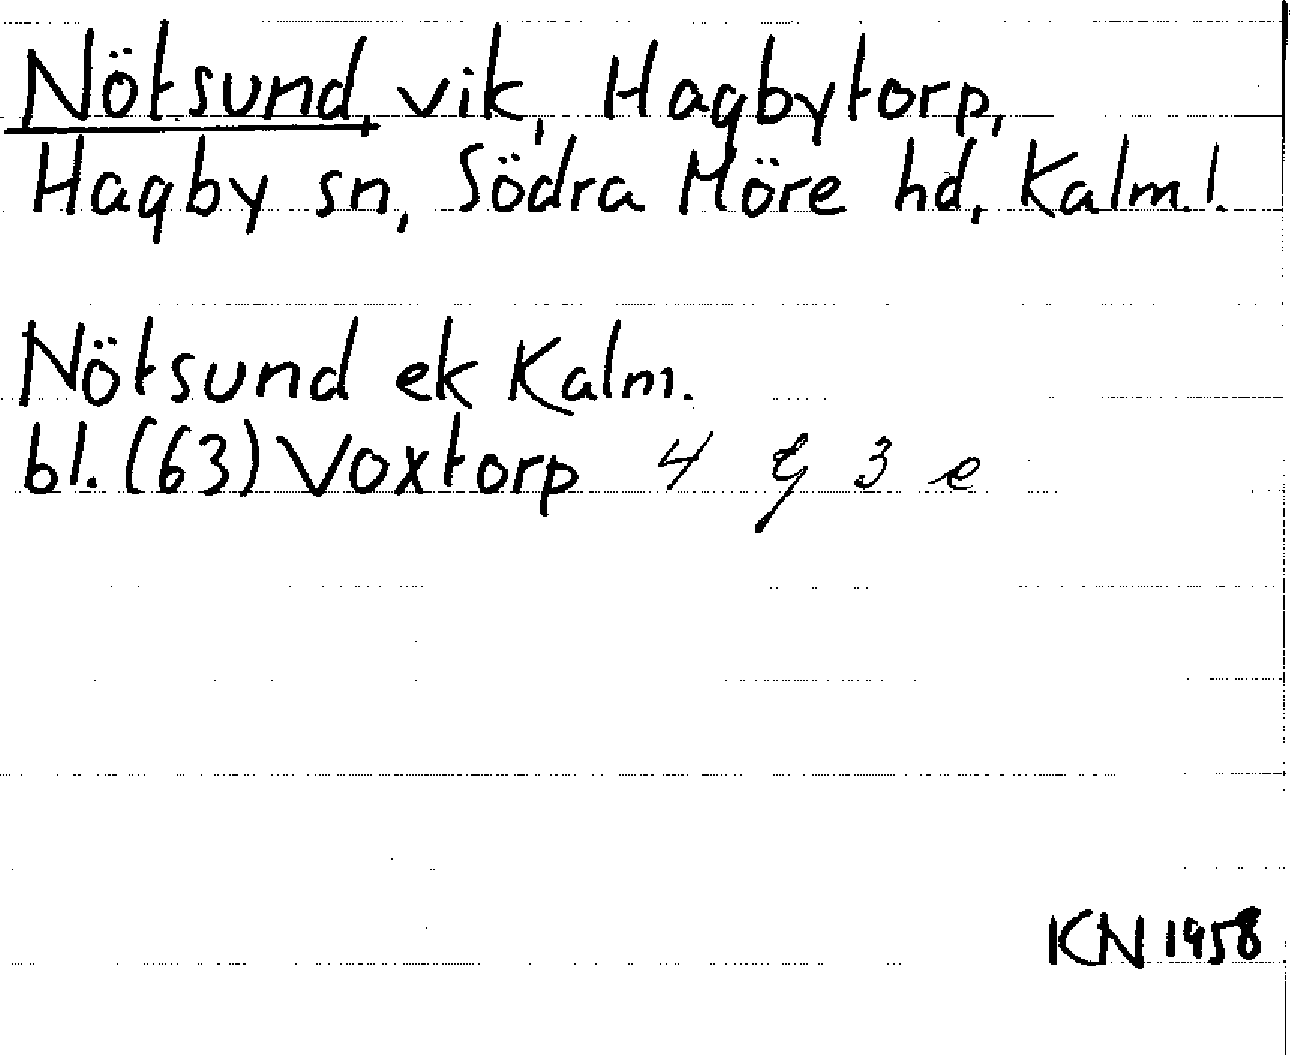 Nötsund, vik, Hagbytorp,
Hagby sn, Södra Möre hd, Kalm.l.
Nötsund ek Kalm.
bl. (63) Voxtorp 4 G 3 e
KN 1958